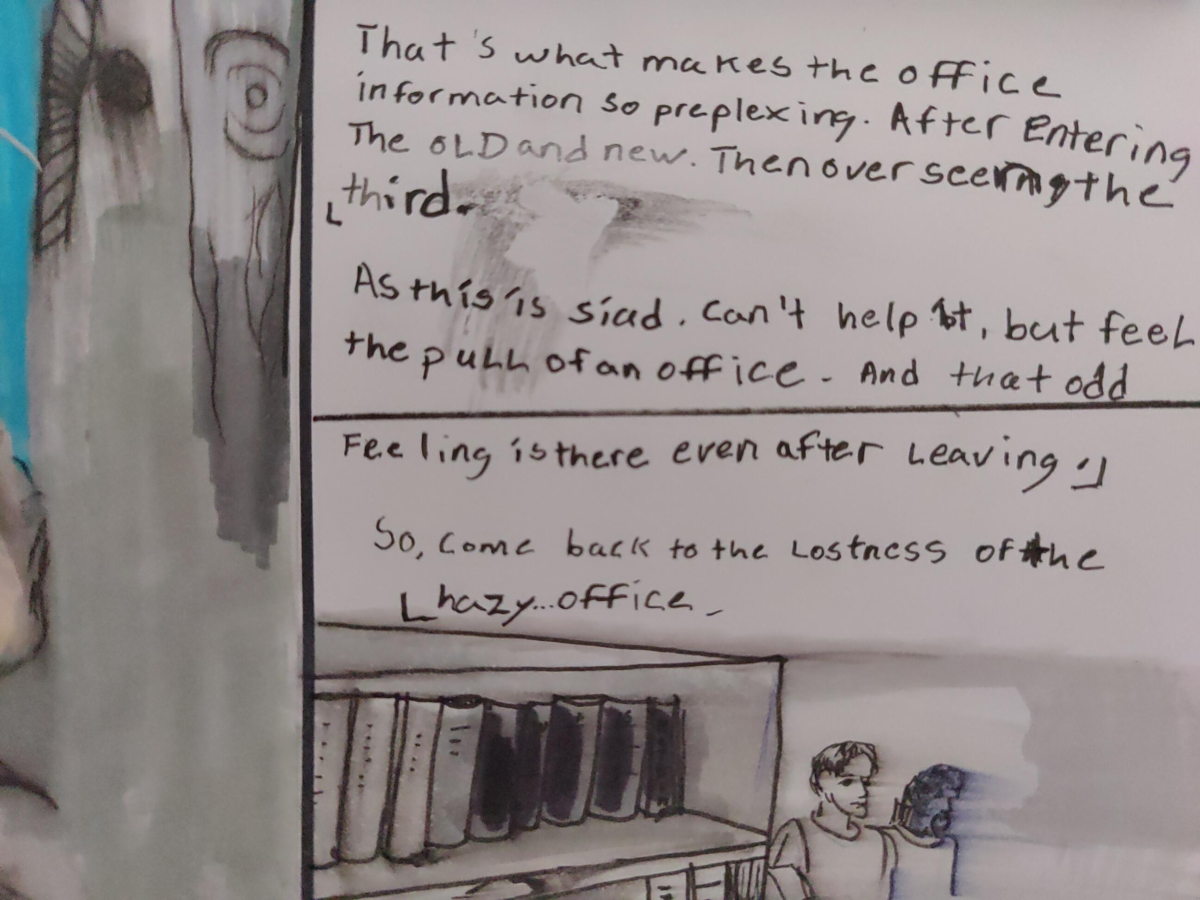 That's what makes the office
information so preplexing. After Entering
The OLD and new. Then over seeing the
third.
As this is siad. Can't help it, but feel
the pull of an office. And that odd
Feeling is there even after Leaving
So, come back to the Lostness of the
hazy...office